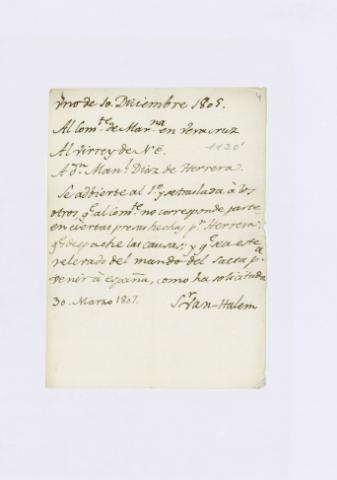 4
Uno de 10. Diciembre 1805.
Al Com.te de Mar.na en Veracruz
Al Virrey de N E.
1120
A D.n Man.l Diaz de Herrera.
Se advierte al 1.o y se traslada à los
otros q.e al Com.te no corresponde parte
en ciertas presas hechas p.r Herrera;
q.e despache las causas; y q.e sea este
relevado del mando del Saeta p.a
venir à españa, como ha solicitado
30. Marzo 1807.
S.r Van-Halem